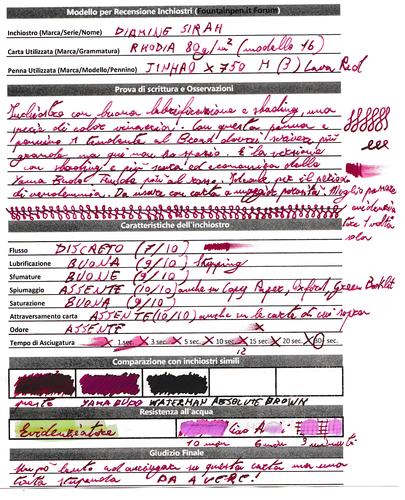 Modello per Recensione Inchiostri (Fountainpen.it Forum)
Inchiostro (Marca/Serie/Nome) DIAMINE SIRAH
Carta Utilizzata (Marca/Grammatura) RHODIA 80g/m² (modello 16)
Penna Utilizzata (Marca/Modello/Pennino) JINHAO X 750 M (3) Lava Red
Prova di scrittura e Osservazioni
Inchiostro con buona lubrificazione e shading, una
specie di color vinaccia. Con questa penna e
pennino M tendente al Broad dovrei scrivere più
grande ma qui non ho spazio. È la versione
con shading e più economica della
Yama Budo
una volta
sola
Caratteristiche dell'inchiostro
Flusso DISCRETO (7/10)
Lubrificazione BUONA (9/10)
Sfumature BUONE (9/10)
Spiumaggio ASSENTE (10/10) anche su Copy Paper, Oxford, Green Booklet
Saturazione BUONA (9/10)
Attraversamento carta ASSENTE (10/10) anche su le carte di cui sopra
Odore ASSENTE
Tempo di Asciugatura 1 sec. 3 sec. 5 sec. 10 sec. 15 sec. 20 sec. 30 sec.
12
Comparazione con inchiostri simili
questo YAMA BUDO WATERMAN ABSOLUTE BROWN
Resistenza all'acqua
Evidenziatore Ciao A
10 min 6 min 3 minuti
Giudizio Finale
Un po' lento ad asciugare su questa carta ma una
tinta stupenda DAVVERO!